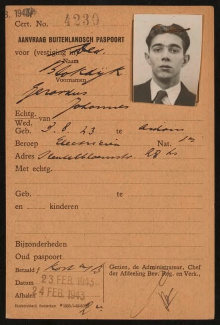 Cert. No. 4230
AANVRAAG BUITENLANDSCH PASPOORT
voor (vestiging)
Naam
Blokdijk
Voornamen
Gerardus
Johannes
Echtg.
Wed. van
Geb. 3.8.23 te
Beroep Electricien Nat.
Adres 28 hs
Met echtg.
en kinderen
Bijzonderheden
Oud paspoort
Betaald
Gezien, de Administrateur, Chef
der Afdeeling Bev. Reg. en Verk.,
Datum 23 FEB. 1943
Afhalen 24 FEB. 1943